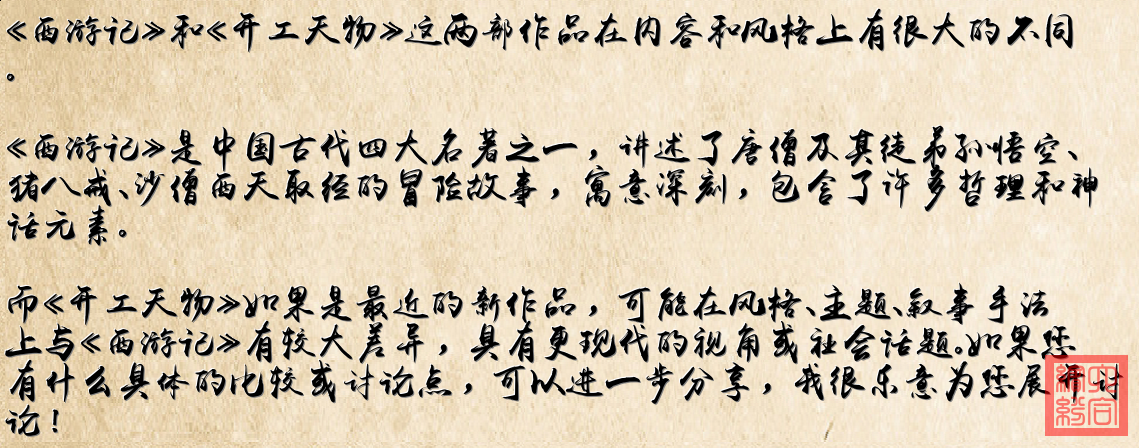 《西游记》和《开工天物》这两部作品在内容和风格上有很大的不同
。
《西游记》是中国古代四大名著之一，讲述了唐僧及其徒弟孙悟空、
猪八戒、沙僧西天取经的冒险故事，寓意深刻，包含了许多哲理和神
话元素。
而《开工天物》如果是最近的新作品，可能在风格、主题、叙事手法
上与《西游记》有较大差异，具有更现代的视角或社会话题。如果您
有什么具体的比较或讨论点，可以进一步分享，我很乐意为您展开讨
论！